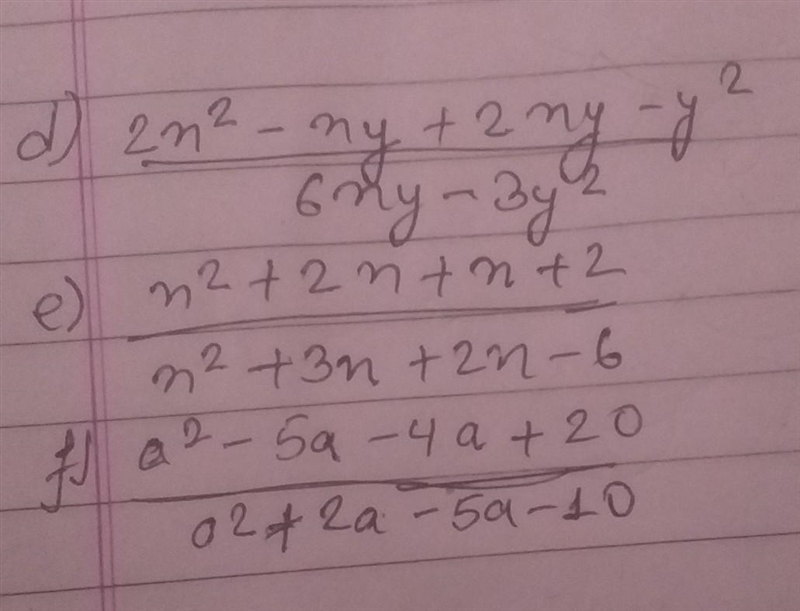 d) 2x² - xy + 2xy - y²
6xy - 3y²
e) x² + 2x + x + 2
x² + 3x + 2x - 6
f) a² - 5a - 4a + 20
a² + 2a - 5a - 10